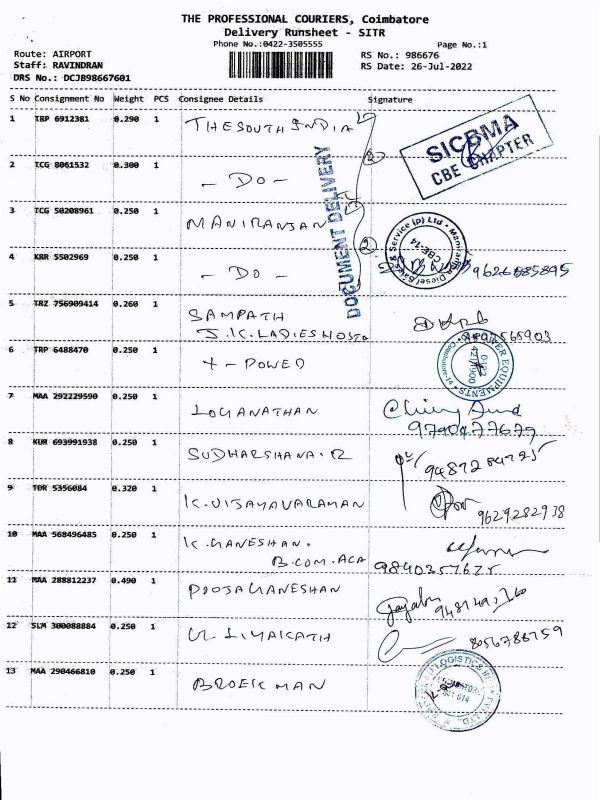 THE PROFESSIONAL COURIERS, Coimbatore
Delivery Runsheet - SITR
Phone No.:0422-3505555 Page No.:1
Route: AIRPORT RS No.: 986676
Staff: RAVINDRAN RS Date: 26-Jul-2022
DRS No.: DCJB98667601
S No Consignment No Weight PCS Consignee Details Signature
1 TRP 6912381 0.290 1 THE SOUTH INDIA
SICBMA
CBE CHAPTER
DOCUMENT DELIVERY
2 TCG 8061532 0.300 1 - DO -
3 TCG 50208961 0.250 1 MANIRANJAN
Maniranjan Diesel Sales & Service (p) Ltd
CBE-14
4 KRR 5502969 0.250 1 - DO -
5 TRZ 756909414 0.260 1 SAMPATH
J.K. LADIES
6 TRP 6488470 0.250 1 + - POWER
POWER EQUIPMENTS
0422
7 MAA 292229590 0.250 1 LOGANATHAN
8 KUR 693991938 0.250 1 SUDHARSHANA.R
9 TOR 5356084 0.320 1 K.VIJAYAVARAMAN
9629282938
10 MAA 568496485 0.250 1 K.GANESHAN.
B.COM.ACA
9840357675
11 MAA 288812237 0.490 1 POOJA GANESHAN
12 SLM 300088884 0.250 1
8056788759
13 MAA 290466810 0.250 1 BROEKMAN
LOGISTICS